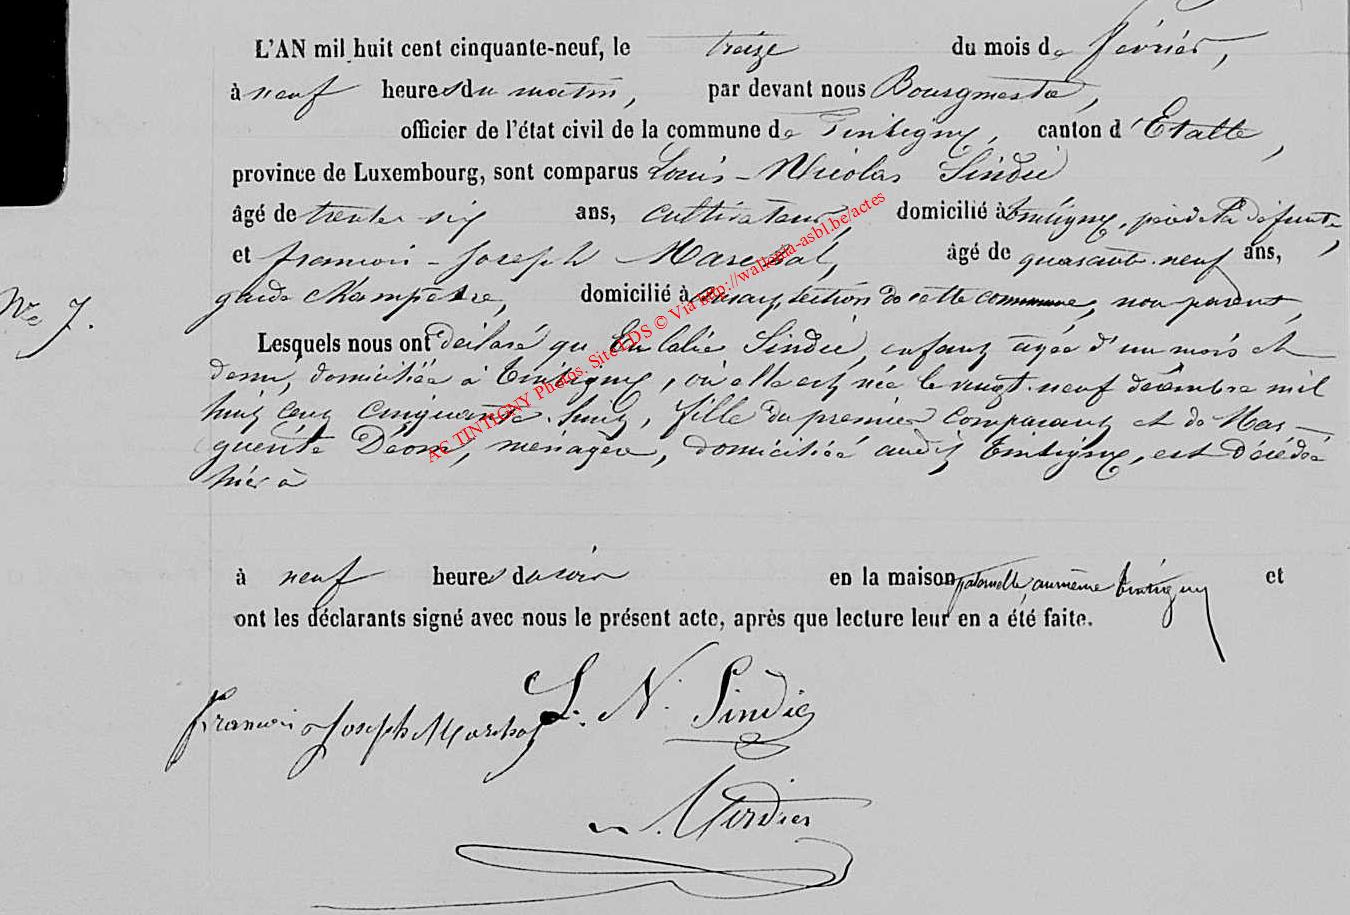 L'AN mil huit cent cinquante-neuf, le treize du mois de février,
à neuf heures du matin, par devant nous Bourgmestre,
officier de l'état civil de la commune de Tintigny, canton d'Etalle,
province de Luxembourg, sont comparus Louis-Nicolas Sindic
âgé de trente six ans, cultivateur, domicilié à Tintigny, père de la défunte,
et françois-Joseph Marechal, âgé de quarante-neuf ans,
garde champêtre, domicilié à section de cette commune, non parent,
N° 7.
Lesquels nous ont déclaré que Eulalie Sindic, enfant âgée d'un mois et
demi, domiciliée à Tintigny, où elle est née le vingt-neuf décembre mil
huit cent cinquante-huit, fille du premier comparant et de Mar-
guerite Déom, ménagère, domiciliée audit Tintigny, est décédée
hier à
à neuf heures du soir en la maison paternelle, au même Tintigny et
ont les déclarants signé avec nous le présent acte, après que lecture leur en a été faite.
L. N. Sindic
françois Joseph Marchal
AC TINTIGNY Photos. Site LDS © Via http://wallonia-asbl.be/actes